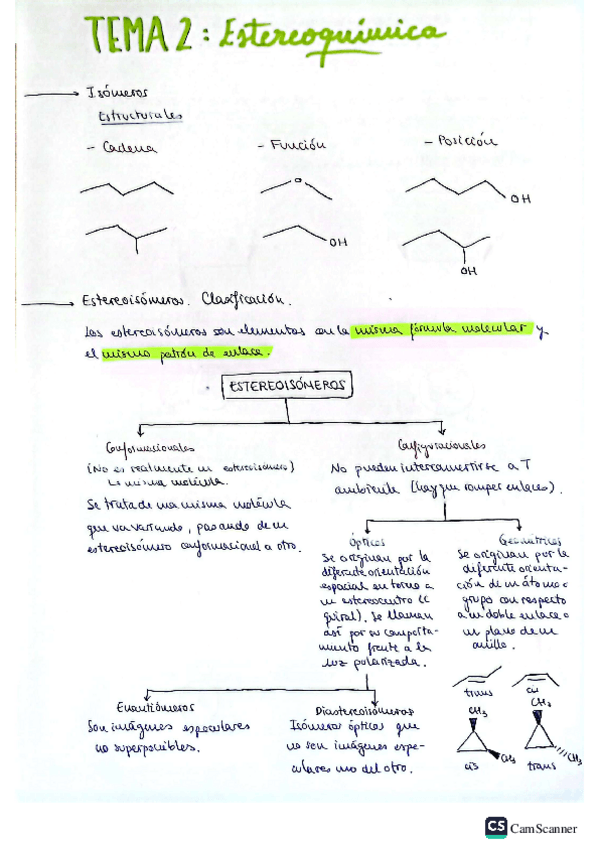 TEMA 2: Estereoquímica
Isómeros
Estructurales
- Cadena
- Función
- Posición
O
OH
OH
OH
Estereoisómeros. Clasificación.
Los estereoisómeros son elementos con la misma fórmula molecular y
el mismo patrón de enlace.
ESTEREOISÓMEROS
Conformacionales
(No es realmente un estereoisómero)
La misma molécula.
Se trata de una misma molécula
que va variando, pasando de un
estereoisómero conformacional a otro.
Configuracionales
No pueden interconvertirse a T
ambiente (hay que romper enlaces).
Ópticos
Se originan por la
diferente orientación
espacial en torno a
un estereocentro (C
quiral). Se llaman
así por su comporta-
miento frente a la
luz polarizada.
Geométricos
Se originan por la
diferente orienta-
ción de un átomo o
grupo con respecto
a un doble enlace o
un plano de un
anillo.
trans
cis
Enantiómeros
Son imágenes especulares
no superponibles.
Diastereoisómeros
Isómeros ópticos que
no son imágenes espe-
culares uno del otro.
CH₃
CH₃
cis
CH₃
CH₃
trans
CS CamScanner